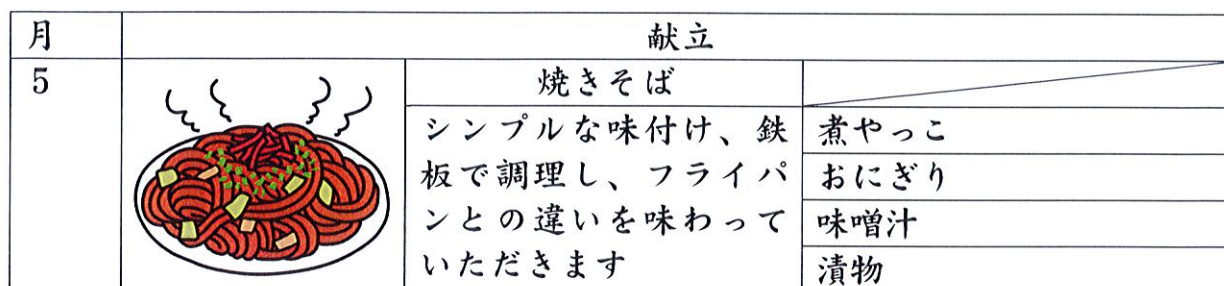 月
献立
5
焼きそば
シンプルな味付け、鉄
板で調理し、フライパ
ンとの違いを味わって
いただきます
煮やっこ
おにぎり
味噌汁
漬物